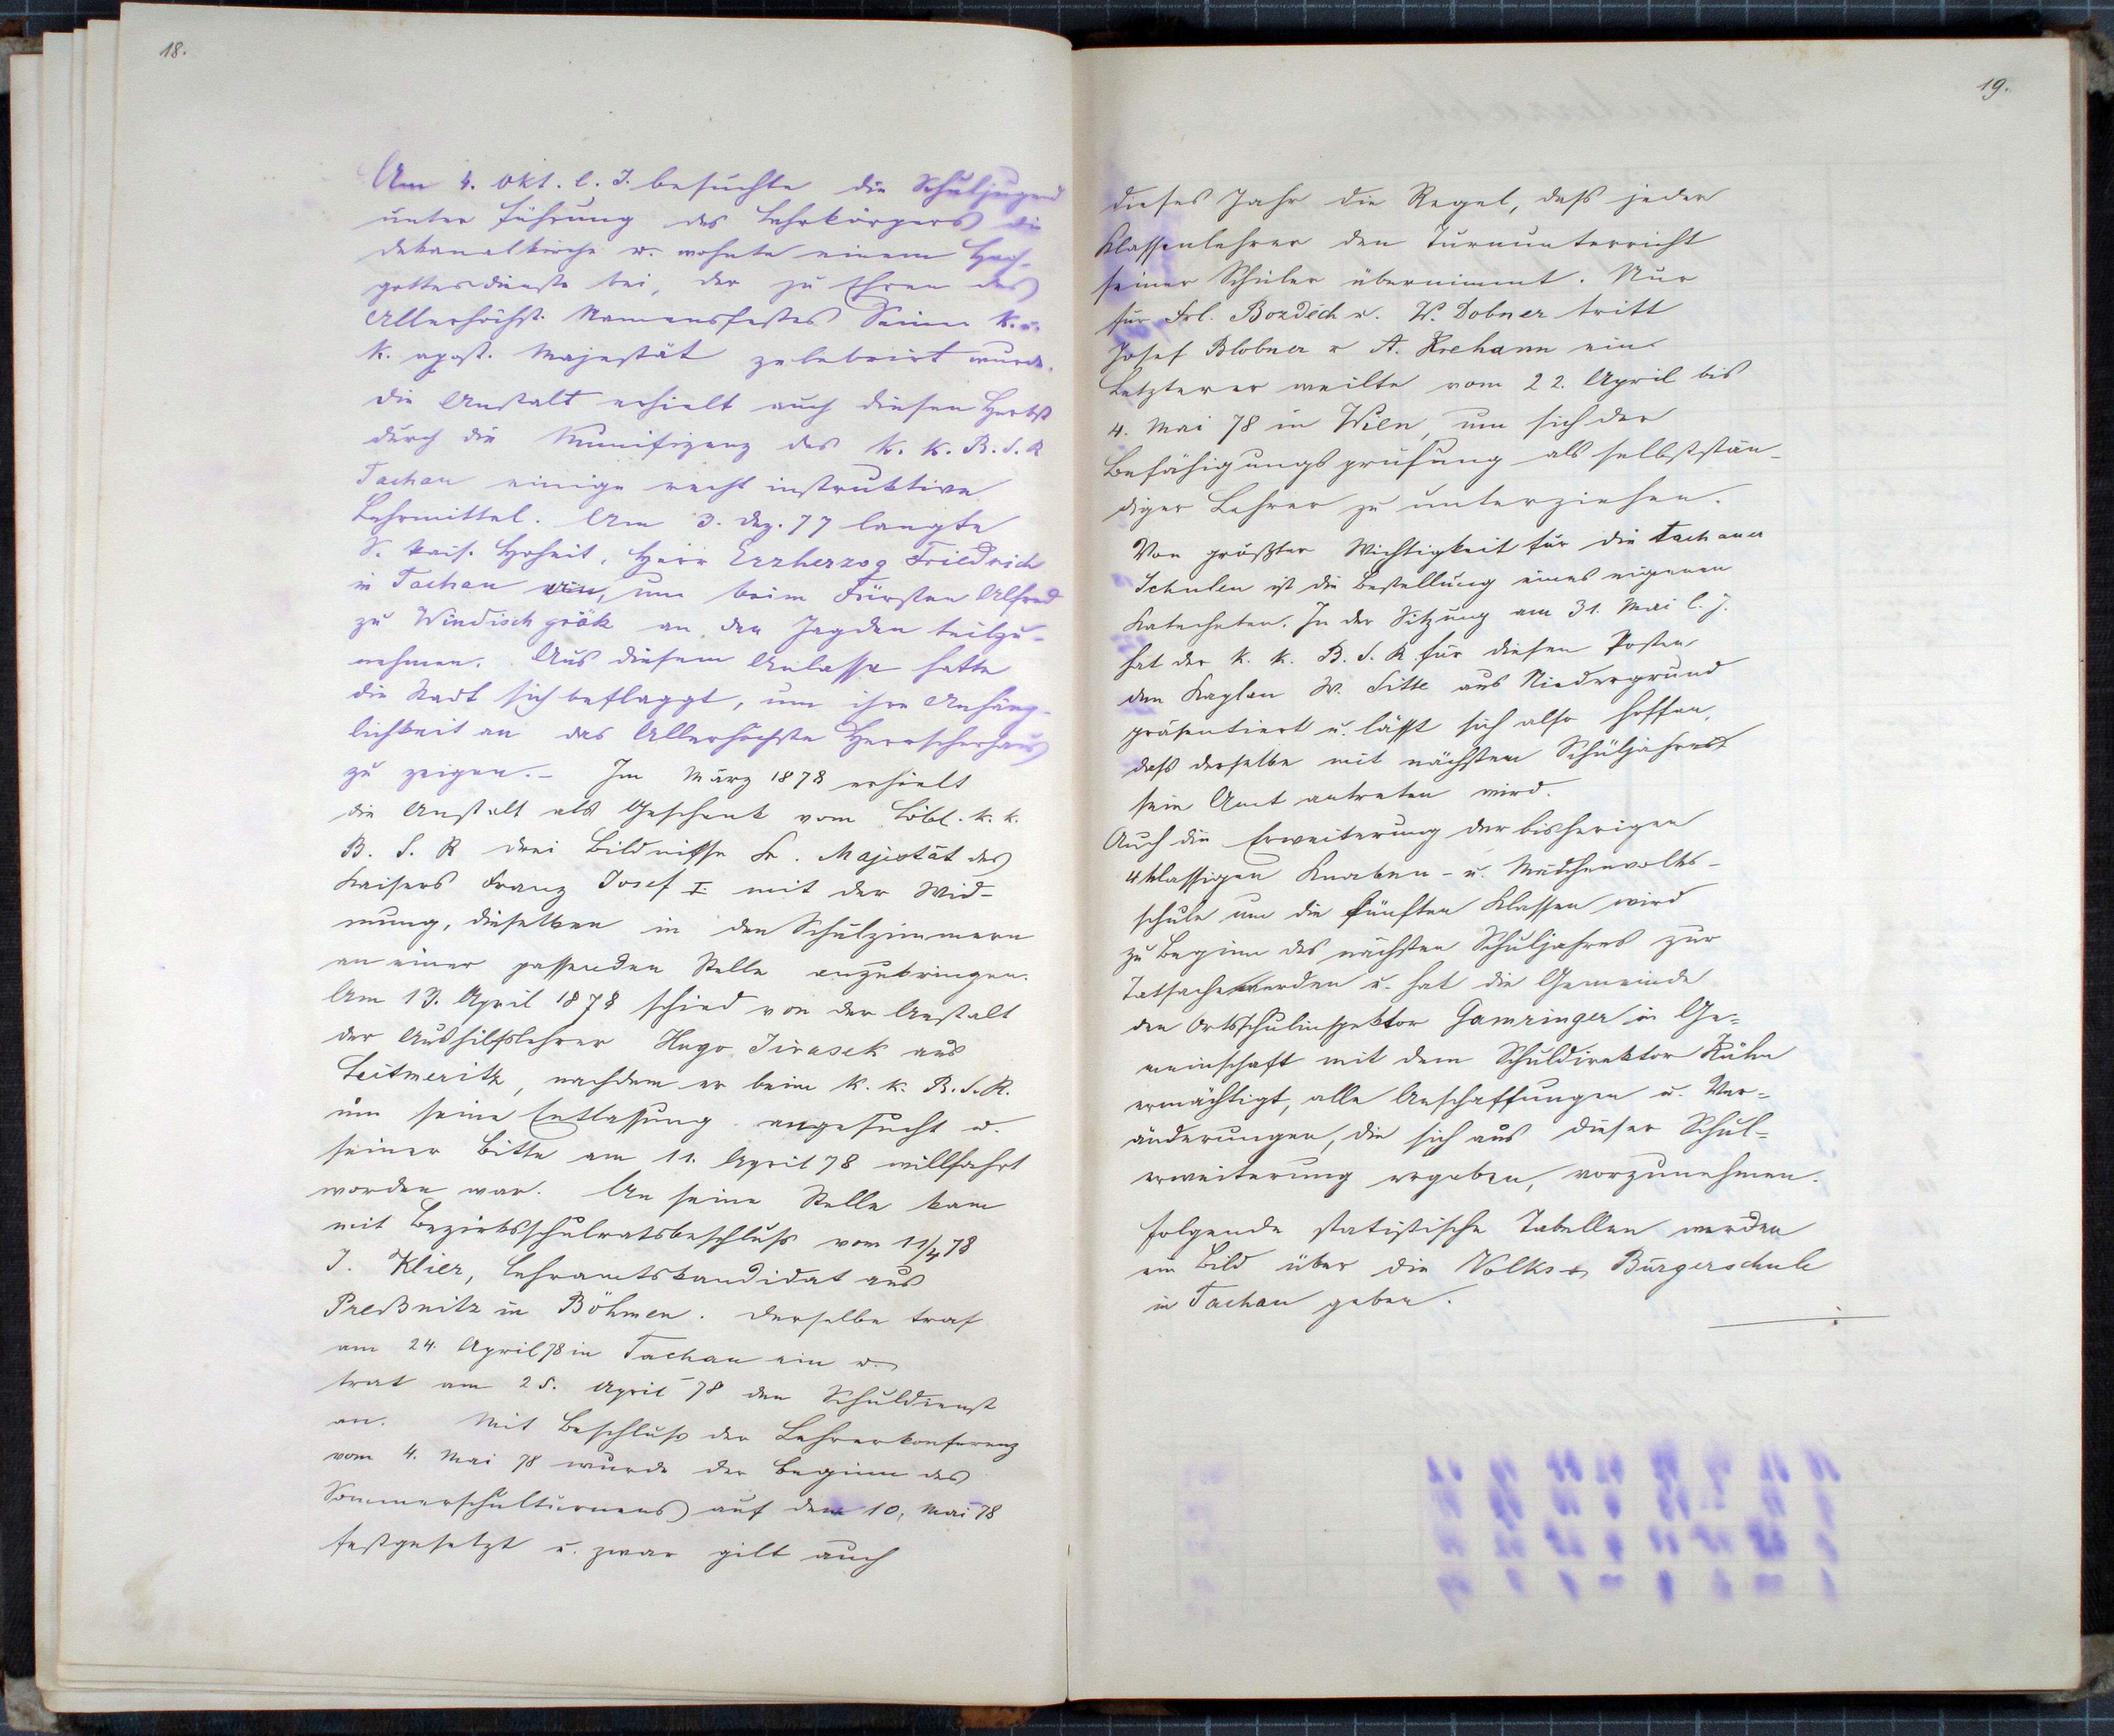 18.
Am 4. Okt. l. J. besuchte die Schuljugend
unter Führung des Lehrkörpers die
Dekanalkirche u. wohnte einem Hoch-
gottesdienste bei, der zu Ehren des
Allerhöchst. Namensfestes Seiner k. u.
k. apost. Majestät zelebriert wurde.
Die Anstalt erhielt auch diesen Herbst
durch die Munifizenz des k. k. B. S. R
Tachau einige recht instruktive
Lehrmittel. Am 3. Dez. 77 langte
S. kais. Hoheit, Herr Erzherzog Friedrich
in Tachau ein, um beim Fürsten Alfred
zu Windischgrätz an den Jagden teilzu-
nehmen. Aus diesem Anlasse hatte
die Stadt sich beflaggt, um ihre Anhäng-
lichkeit an das Allerhöchste Herrscherhaus
zu zeigen. – Im März 1878 erhielt
die Anstalt als Geschenk vom Löbl. k. k.
B. S. R drei Bildnisse Sr. Majestät des
Kaisers Franz Josef I. mit der Wid-
mung, dieselben in den Schulzimmern
an einer passenden Stelle anzubringen.
Am 13. April 1878 schied von der Anstalt
der Aushilfslehrer Hugo Jirasek aus
Leitmeritz, nachdem er beim k. k. B. S. R.
um seine Entlassung angesucht u.
seiner Bitte am 11. April 78 willfahrt
worden war. An seine Stelle kam
mit Bezirksschulratsbeschluß vom 11/4 78
J. Klier, Lehramtskandidat aus
Preßnitz in Böhmen. Derselbe traf
am 24. April 78 in Tachau ein u.
trat am 25. April 78 den Schuldienst
an. Mit Beschluß der Lehrerkonferenz
vom 4. Mai 78 wurde der Beginn des
Sommerschulturnens auf den 10. Mai 78
festgesetzt u. zwar gilt auch
19.
dieses Jahr die Regel, daß jeder
Klassenlehrer den Turnunterricht
seiner Schüler übernimmt. Nur
für Frl. Bozděch u. W. Dobner tritt
Josef Blobner u A. Krehann ein.
Letzterer weilte vom 22. April bis
4. Mai 78 in Wien, um sich der
Befähigungsprüfung als selbststän-
diger Lehrer zu unterziehen.
Von größter Wichtigkeit für die Tachauer
Schulen ist die Bestellung eines eigenen
Katecheten. In der Sitzung am 31. Mai l. J.
hat der k. k. B. S. R für diesen Posten
den Kaplan W. Sitte aus Niedergrund
präsentiert u. läßt sich also hoffen,
daß derselbe mit nächstem Schuljahre
sein Amt antreten wird.
Auch die Erweiterung der bisherigen
4klassigen Knaben- u. Mädchenvolks-
schule um die fünften Klassen wird
zu Beginn des nächsten Schuljahres zur
Tatsache werden u. hat die Gemeinde
den Ortsschulinspektor Gamringer in Ge-
meinschaft mit dem Schuldirektor Kühn
ermächtigt, alle Anschaffungen u. Ver-
änderungen, die sich aus dieser Schul-
erweiterung ergeben, vorzunehmen.
Folgende statistische Tabellen werden
ein Bild über die Volks- u. Bürgerschule
in Tachau geben.